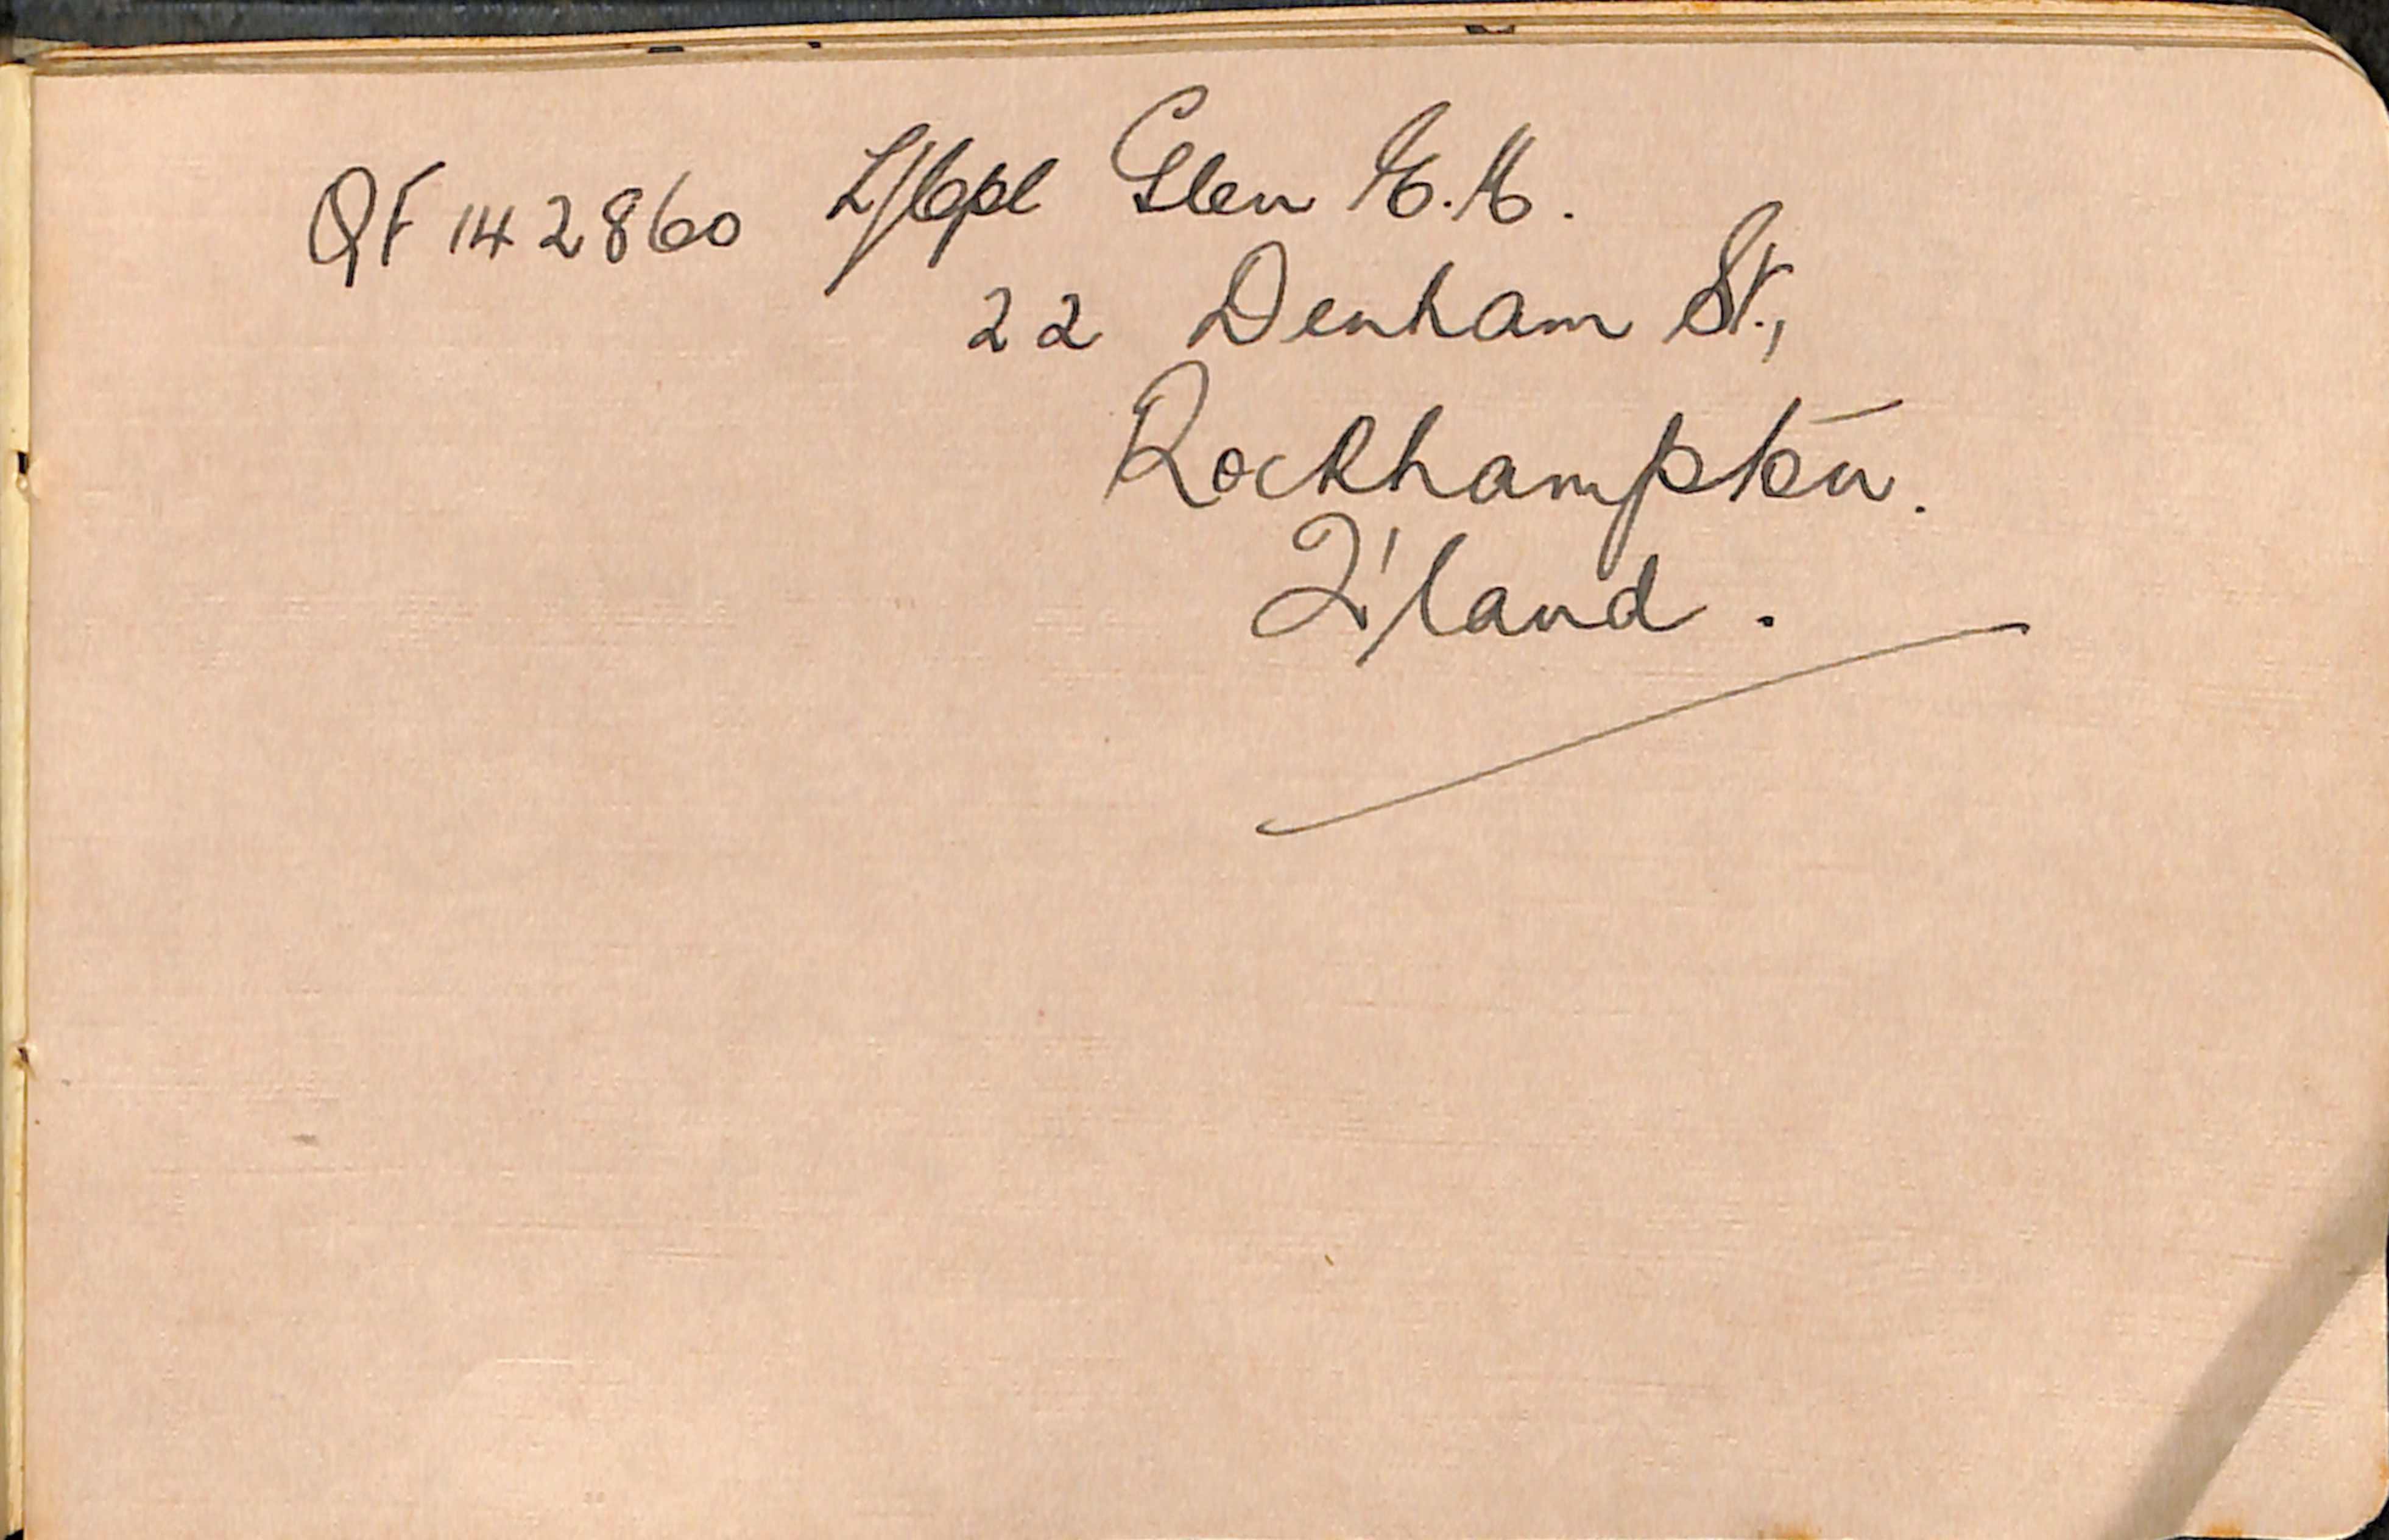 QF 142860 L/Cpl Glen H.H.
22 Denham St.,
Rockhampton.
Q'land.